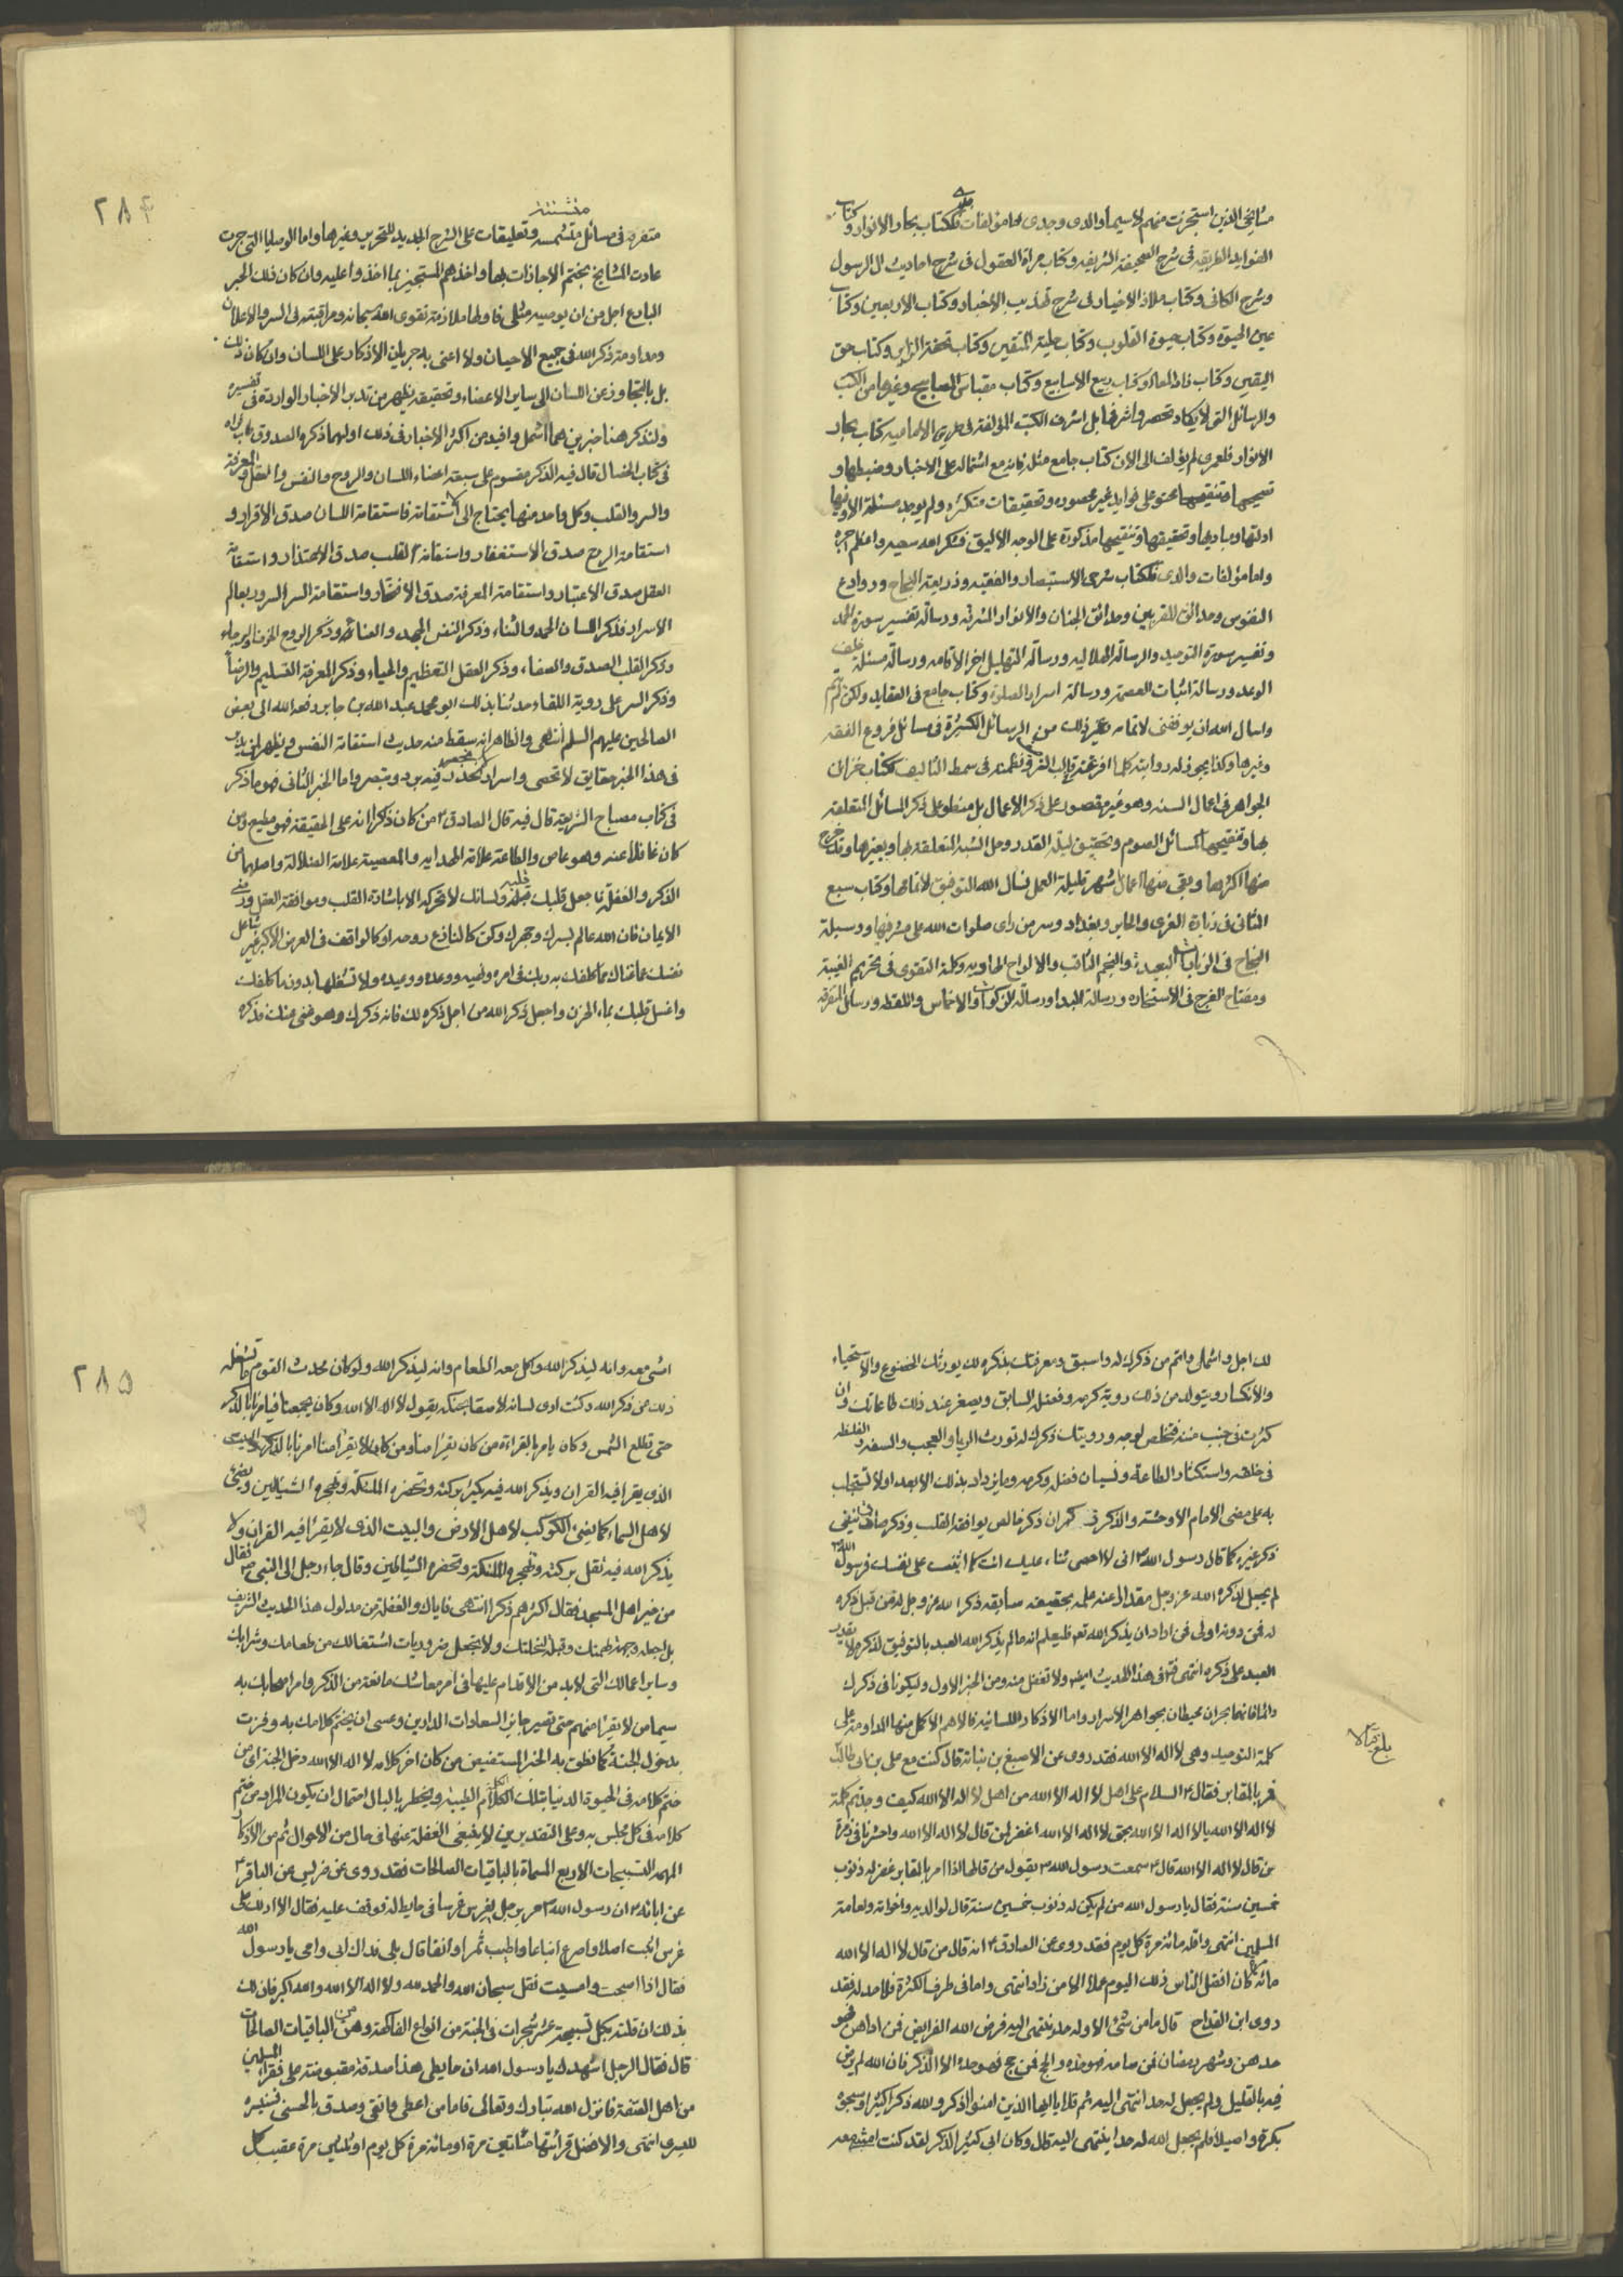 مشايخى الذين استجزت منهم لا سيما والدى وجدى اما مؤلفات جدى فكتاب بحار الانوار وكتاب
الفوايد الطريقه فى شرح الصحيفة الشريفه وكتاب مراة العقول فى شرح احاديث ال الرسول
وشرح الكافى وكتاب ملاذ الاخيار فى شرح تهذيب الاخبار وكتاب الاربعين وكتاب
عين الحيوة وكتاب حيوة القلوب وكتاب حلية المتقين وكتاب تحفة الزاير وكتاب حق
اليقين وكتاب زاد المعاد وكتاب ربيع الاسابيع وكتاب مقباس المصابيح وغيرها من الكتب
والرسائل التى لا يكاد تحصر واشرفها بل اشرف الكتب المؤلفة فى طريق الامامية كتاب بحار
الانوار فلعمرى لم يؤلف الى الان كتاب جامع مثله فانه مع اشتماله على الاخبار وضبطها و
تصحيحها محتو على فوايد غير محصوره وتحقيقات متكثرة ولم يوجد مسئلة الا وفيها
ادلتها ومباديها وتحقيقها وتنقيحها مذكورة على الوجه الاليق فشكر الله سعيه واعظم اجره
واما مؤلفات والدى فكتاب شرحى الاستبصار والفقيه وذريعة النجاح وروادع
النفوس وحدائق المقربين وحدائق الجنان والانوار المشرقة ورسالة تفسير سورة الحمد
وتفسير سورة التوحيد والرسالة الهلاليه ورسالة التهليل اخر الاقامه ورسالة مسئلة خلف
الوعد ورسالة اثبات العصمة ورسالة اسرار الصلوة وكتاب جامع فى العقايد ولكن لم يتم
واسال الله ان يوفقنى لاتمامه وغير ذلك من الرسائل الكثيرة فى مسائل فروع الفقه
وغيرها وكذا يجوز له رواية كلما افرغته فى قالب النثر ونظمته فى سمط التاليف ككتاب خزائن
الجواهر فى اعمال السنه وهو غير مقصور على ذكر الاعمال بل منطو على ذكر المسائل المتعلقة
بها وتنقيحها كمسائل الصوم وتحقيق ليلة القدر وحل الشبه المتعلقة بها وبغيرها وقد خرج
منها اكثرها وبقى منها اعمال شهر قليلة العمل نسال الله التوفيق لاتمامها وكتاب سبع
المثانى فى زيارة الغرى والحاير وبغداد وسر من راى صلوات الله على مشرفيها ووسيلة
النجاح فى الزيارات البعيدة والنجم الثاقب والالواح السماويه وكلمة التقوى فى تحريم الغيبة
ومفتاح الفرج فى الاستخاره ورسالة البدا ورسالة الزكوات والاخماس واللقطه ورسائل متفرقه
٢٨٤
متفرقه فى مسائل متشتته وتعليقات على الشرح الجديد للتجريد وغيرها واما الوصايا التى جرت
عادت المشايخ بختم الاجازات بها واخذهم المستجيز بما اخذوا عليه وان كان ذلك الحبر
البارع اجل من ان يوصيه مثلى فاولها ملازمة تقوى الله سبحانه ومراقبته فى السر والاعلان
ومداومة ذكر الله فى جميع الاحيان ولا اعنى به جريان الاذكار على اللسان وان كان ذلك
بل بالتجاوز عن اللسان الى ساير الاعضاء وتحقيقه يظهر من تدبر الاخبار الواردة فى تفسيره
ولنذكر هنا خبرين هما اشمل وافيد من اكثر الاخبار فى ذلك اولهما ذكره الصدوق طاب ثراه
فى كتاب الخصال قال فيه الذكر مقسوم على سبعة اعضاء اللسان والروح والنفس والعقل والمعرفة
والسر والقلب وكل واحد منها يحتاج الى استقامة فاستقامة اللسان صدق الاقرار و
استقامة الروح صدق الاستغفار واستقامة القلب صدق الاعتذار واستقامة
العقل صدق الاعتبار واستقامة المعرفة صدق الافتخار واستقامة السر السرور بعالم
الاسرار فذكر اللسان الحمد والثناء وذكر النفس الجهد والعناء وذكر الروح الخوف والرجاء
وذكر القلب الصدق والصفاء وذكر العقل التعظيم والحياء وذكر المعرفة التسليم والرضا
وذكر السر على روية اللقاء حدثنا بذلك ابو محمد عبد الله بن حامد رفعه الى بعض
الصالحين عليهم السلم انتهى والظاهر انه سقط منه حديث استقامة النفس ويظهر لمن تدبر
فى هذا الخبر حقايق لا تحصى واسرار فتدبر وتبصر واما الخبر الثانى فهو ما ذكر
فى كتاب مصباح الشريعة قال فيه قال الصادق ع من كان ذاكرا لله على الحقيقة فهو مطيع ومن
كان غافلا عنه وهو عاص والطاعة علامة الهدايه والمعصية علامة الضلالة واصلهما من
الذكر والغفلة فاجعل قلبك قبلة ولسانك لا تحركه الا باشارة القلب وموافقة العقل ورضى
الايمان فان الله عالم بسرك وجهرك وكن كالنازع روحه او كالواقف فى العرض الاكبر غير شاغل
نفسك عما عناك مما كلفك به ربك فى امره ونهيه ووعده ووعيده ولا تشغلها بدون ما كلفك
واغسل قلبك بماء الحزن واجعل ذكر الله من اجل ذكره لك فانه ذكرك وهو غنى عنك فذكره
لك اجل واشهى واتم من ذكرك له واسبق ومعرفتك بذكره لك يورثك الخضوع والاستحياء
والانكسار ويتولد من ذلك روية كرمه وفضله السابق ويصغر عند ذلك طاعاتك وان
كثرت فى جنب مننه فتخلص لوجهه ورويتك ذكرك له تورث الريا والعجب والسفه والغلظه
فى خلقه واستكثار الطاعة ونسيان فضله وكرمه وما يزداد بذلك الا بعدا ولا تستجلب
به على مضى الايام الا وحشة والذكر ذكران ذكر خالص يوافقه القلب وذكر صارف ينفى
ذكر غيره كما قال رسول الله ص انى لا احصى ثناء عليك انت كما اثنيت على نفسك فرسول الله ص
لم يجعل لذكره الله عز وجل مقدارا عند علمه بحقيقة سابقة ذكر الله عز وجل له من قبل ذكره
له فمن دونه اولى فمن اراد ان يذكر الله تع فليعلم انه ما لم يذكر الله العبد بالتوفيق لذكره لا يقدر
العبد على ذكره انتهى فتدبر فى هذا الحديث ايضا ولا تغفل منه ومن الخبر الاول وليكونا فى ذكرك
دائما فانهما بحران محيطان بجواهر الاسرار واما الاذكار اللسانية فالاهم الاكمل منها المداومة على
كلمة التوحيد وهى لا اله الا الله فقد روى عن الاصبغ بن نباتة قال كنت مع على بن ابى طالب ع
فمر بالمقابر فقال ع السلام على اهل لا اله الا الله من اهل لا اله الا الله كيف وجدتم كلمة
لا اله الا الله يا لا اله الا الله بحق لا اله الا الله اغفر لمن قال لا اله الا الله واحشرنا فى زمرة
من قال لا اله الا الله قال ع سمعت رسول الله ص يقول من قالها اذا مر بالمقابر غفر له ذنوب
خمسين سنة فقال يا رسول الله من لم يكن له ذنوب خمسين سنة قال لوالديه واخوانه ولعامة
المسلمين انتهى واقله مائة مرة كل يوم فقد روى عن الصادق ع انه قال من قال لا اله الا الله
مائة مرة كان افضل الناس ذلك اليوم عملا الا من زاد انتهى واما فى طرف الكثرة فلا حد له فقد
روى ابن القداح قال ما من شئ الا وله حد ينتهى اليه فرض الله الفرايض فمن اداهن فهو
حدهن وشهر رمضان فمن صامه فهو حده والحج فمن حج فهو حده الا الذكر فان الله لم يرض
فيه بالقليل ولم يجعل له حدا انتهى اليه ثم تلا يا ايها الذين امنوا اذكروا الله ذكرا كثيرا وسبحوه
بكرة واصيلا فلم يجعل الله له حدا ينتهى اليه قال وكان ابى كثير الذكر لقد كنت امشى معه
بلغ قبالا
٢٨٥
امشى معه وانه ليذكر الله واكل معه الطعام وانه ليذكر الله ولو كان يحدث القوم ما يشغله
ذلك عن ذكر الله وكنت ارى لسانه لاصقا بحنكه يقول لا اله الا الله وكان يجمعنا فيامرنا بالذكر
حتى تطلع الشمس وكان يامرنا بالقراءة من كان يقرا منا ومن كان لا يقرا منا امرنا بالذكر والبيت
الذى يقرا فيه القران ويذكر الله فيه يكثر بركته وتحضره الملئكة وتهجره الشياطين ويضئ
لاهل السماء كما يضئ الكوكب لاهل الارض والبيت الذى لا يقرا فيه القران ولا
يذكر الله فيه تقل بركته وتهجره الملئكة وتحضره الشياطين وقال جاء رجل الى النبى ص فقال
من خير اهل المسجد فقال اكثرهم ذكرا انتهى فاياك والغفلة من مدلول هذا الحديث الشريف
بل اجعله وجهة همتك وقبلة ولا تجعل ضروريات اشتغالك من طعامك وشرابك
وساير اعمالك التى لا بد من الاقدام عليها فى امر معاشك مانعة من الذكر وامر اصحابك به
سيما من لا يقرا منهم حتى تصير حايز السعادات الدارين وعسى ان يختم كلامك به وفزت
بدخول الجنة كما نطق به الخبر المستفيض من كان اخر كلامه لا اله الا الله دخل الجنة اى من
ختم كلامه فى الحيوة الدنيا بتلك الكلمة الطيبة ويخطر بالبال احتمال ان يكون المراد من ختم
كلامه فى كل مجلس به وعلى التقديرين لا ينبغى الغفلة عنها فى حال من الاحوال ثم من الاذكار
المهمه التسبيحات الاربع المسماة بالباقيات الصالحات فقد روى عن ضريس عن الباقر ع
عن ابائه ع ان رسول الله ص مر برجل يغرس غرسا فى حايط له فوقف عليه فقال الا ادلك على
غرس اثبت اصلا واسرع ايناعا واطيب ثمرا وانقا قال بلى فداك ابى وامى يا رسول الله
فقال اذا اصبحت وامسيت فقل سبحان الله والحمد لله ولا اله الا الله والله اكبر فان لك
بذلك ان قلته بكل تسبيحة عشر شجرات فى الجنة من انواع الفاكهة وهن من الباقيات الصالحات
قال فقال الرجل اشهدك يا رسول الله ان حايطى هذا صدقة مقبوضة على فقراء المسلمين
من اهل الصفة فانزل الله تبارك وتعالى فاما من اعطى واتقى وصدق بالحسنى فسنيسره
لليسرى انتهى والافضل قرائتها ثلثمائة مرة او مائة مرة كل يوم او ثلثين مرة عقيب كل